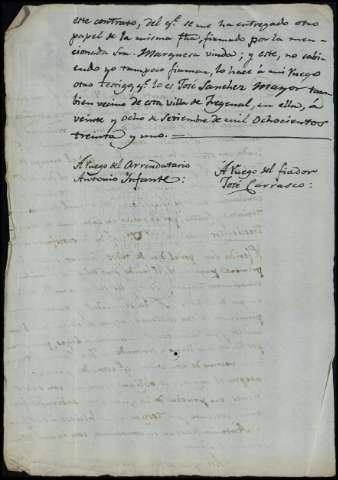 este contrato, del q.l se me ha entregado otro
papel de la misma fha, firmado por la men-
cionada Sra. Marquesa viuda; y este, no sabi-
endo yo tampoco firmar, lo hace à mi ruego
otro testigo, q.e lo es José Sanchez Mayor tam-
bien vecino de esta villa de Fregenal, en ella, à
veinte y ocho de Setiembre de mil ochocientos
treinta y uno.
A ruego del Arrendatario
Antonio Infante:
A ruego del fiador
José Carrasco: